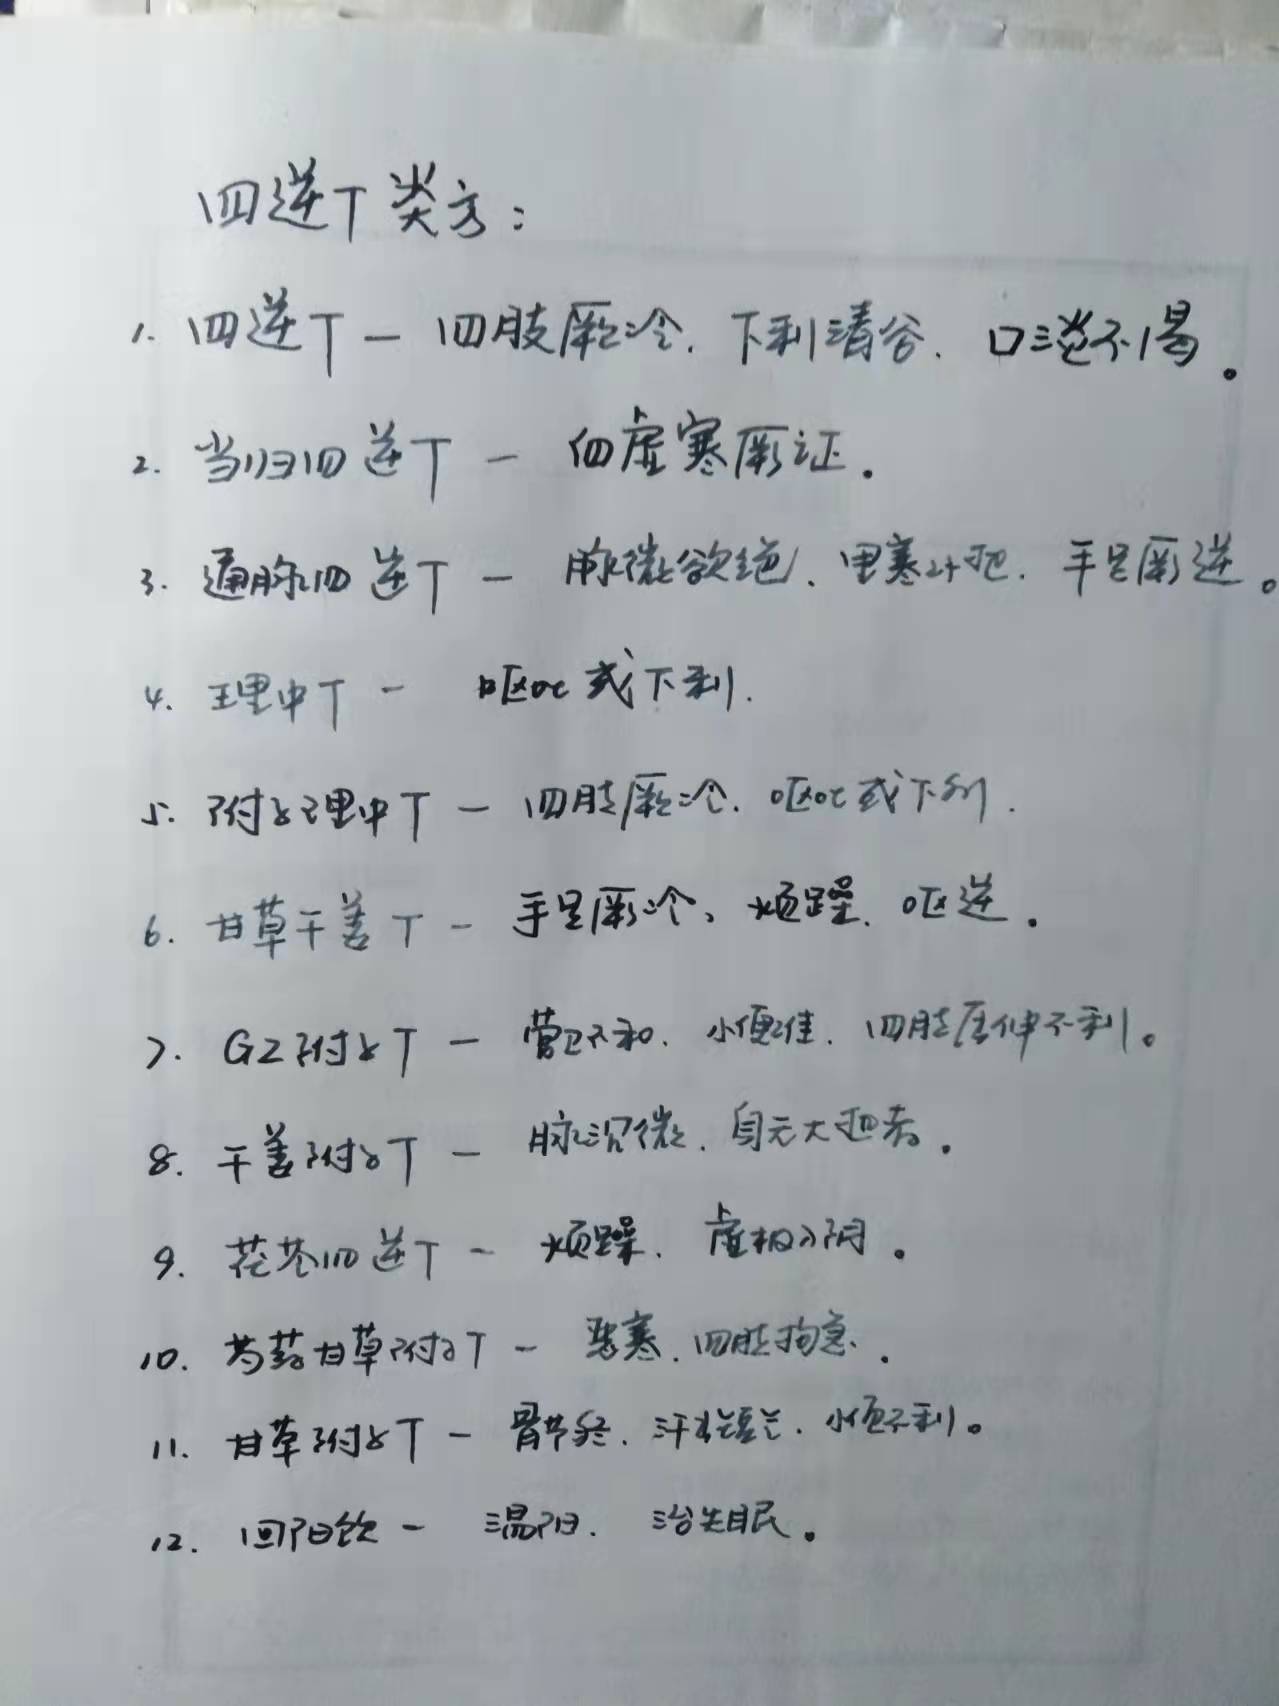 四逆T类方：
1. 四逆T — 四肢厥冷. 下利清谷. 口淡不渴。
2. 当归四逆T — 血虚寒厥证.
3. 通脉四逆T — 脉微欲绝. 里寒外. 手足厥逆。
4. 理中T — 呕吐或下利.
5. 附子理中T — 四肢厥冷. 呕吐或下利.
6. 甘草干姜T — 手足厥冷、烦躁. 呕逆.
7. GZ附子T — 营卫不和. 小便难. 四肢屈伸不利。
8. 干姜附子T — 脉沉微. 身无大热者.
9. 茯苓四逆T — 烦躁. 虚极入阴.
10. 芍药甘草附子T — 恶寒. 四肢拘急.
11. 甘草附子T — 骨节疼. 汗出短气. 小便不利。
12. 回阳饮 — 温阳. 治失眠.